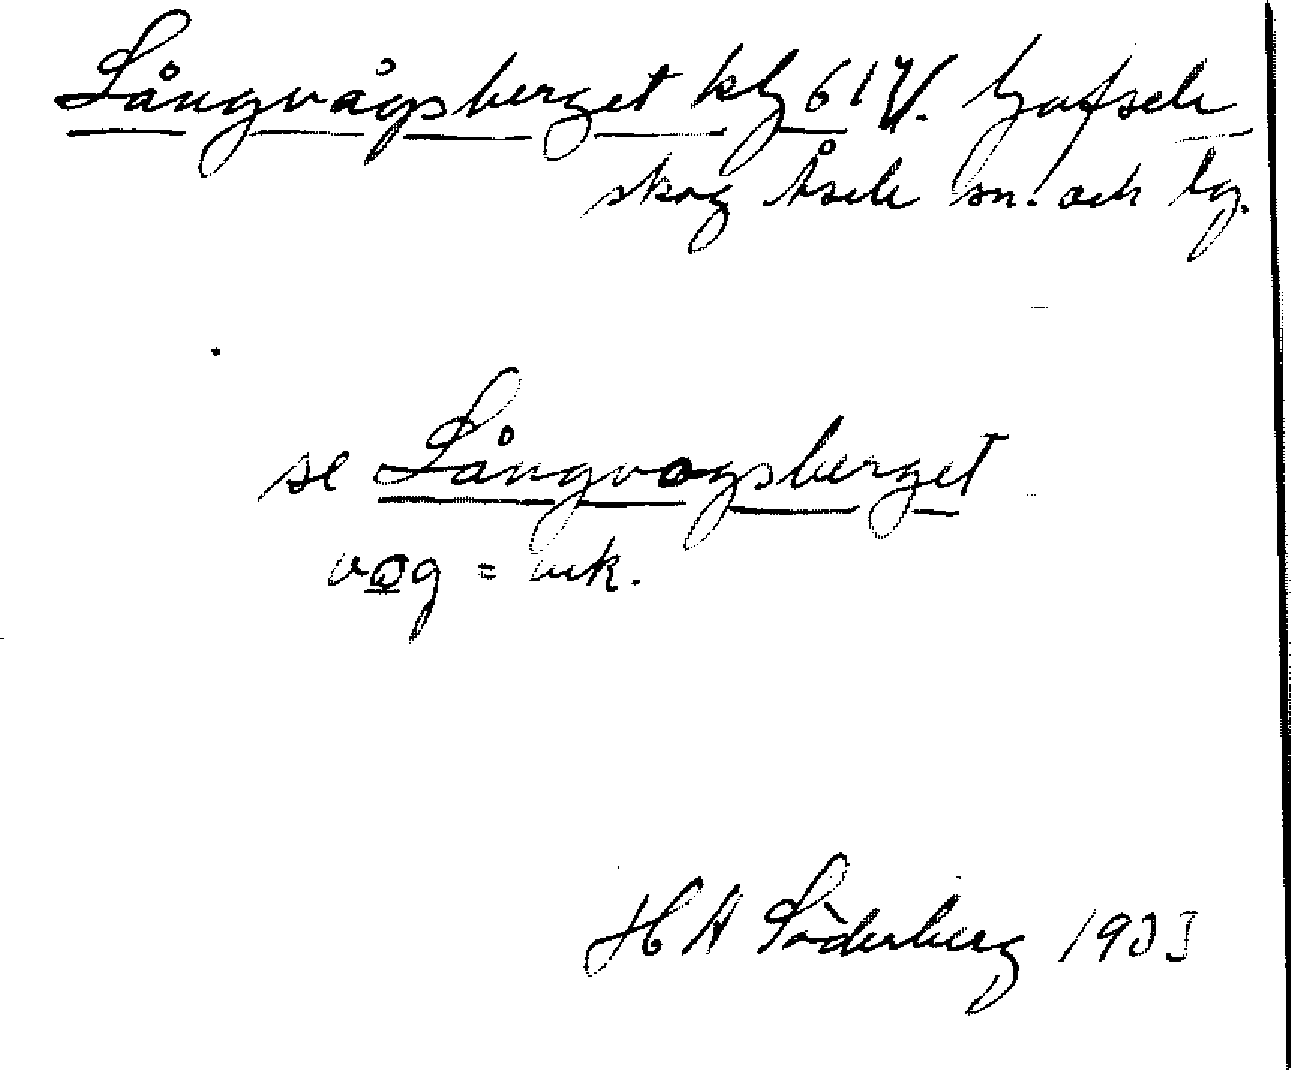 Långvågsberget klj 61 V. Gafsele
skog Åsele sn. och lg.
se Långvogsberget
vog = vik.
H A Söderberg 1933